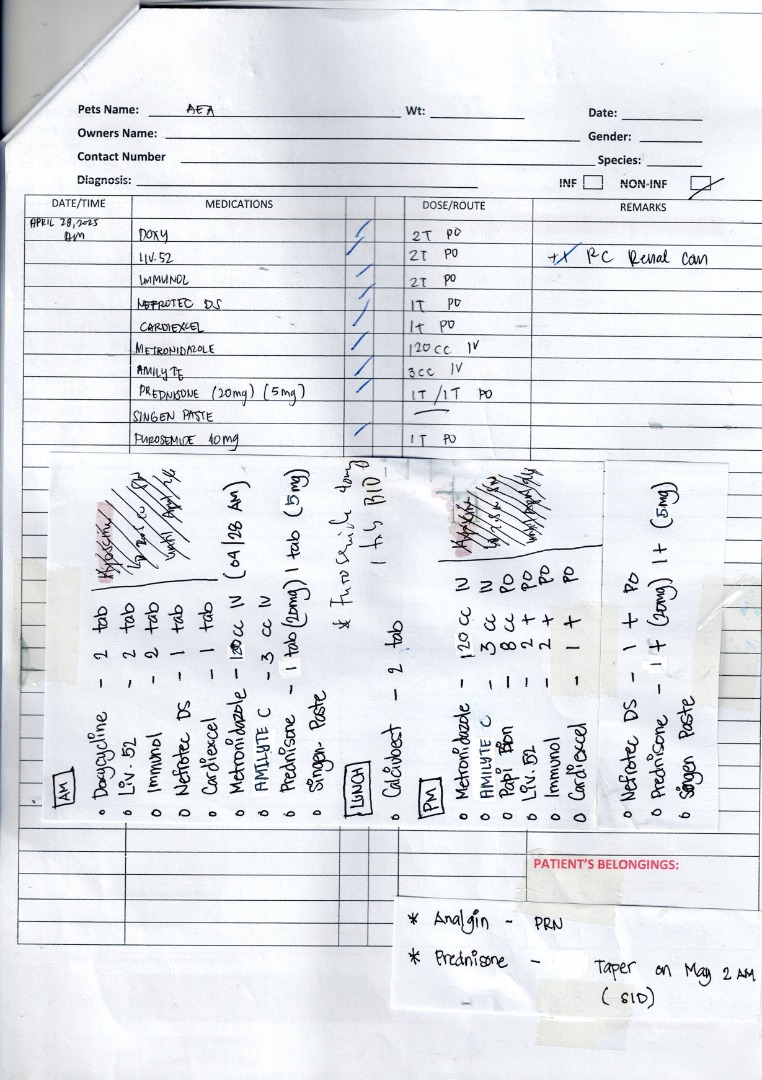 Pets Name: AEA Wt: Date:
Owners Name: Gender:
Contact Number Species:
Diagnosis: INF NON-INF
DATE/TIME MEDICATIONS DOSE/ROUTE REMARKS
APRIL 28, 2025
AM DOXY 2T PO
LIV.52 2T PO RC Renal Can
IMMUNOL 2T PO
NEFROTEC DS 1T PO
CARDIEXCEL 1t PO
METRONIDAZOLE 120 CC IV
AMILYTE 3 CC IV
PREDNISONE (20mg) (5mg) 1T/1T PO
SINGEN PASTE
FUROSEMIDE 40mg 1T PO
AM
Doxycycline - 2 tab
Liv. 52 - 2 tab
Immunol - 2 tab
Nefrotec DS - 1 tab
Cardiexcel - 1 tab
Metronidazole - 120 cc IV (04/28 AM)
AMILYTE C - 3 cc IV
Prednisone - 1 tab (20mg) 1 tab (5mg)
Singen-Paste
* Furosemide 40mg
1 tab BID
LUNCH
Calciboost - 2 tab
PM
Metronidazole - 120 cc IV
AMILYTE C - 3 cc IV
Papi Iron - 8 cc PO
Liv. 52 - 2 t PO
Immunol - 2 t PO
Cardiexcel - 1 t PO
Nefrotec DS - 1 t PO
Prednisone - 1 t (20mg) 1t (5mg)
Singen Paste
PATIENT'S BELONGINGS:
* Analgin - PRN
* Prednisone - Taper on May 2 AM
(SID)